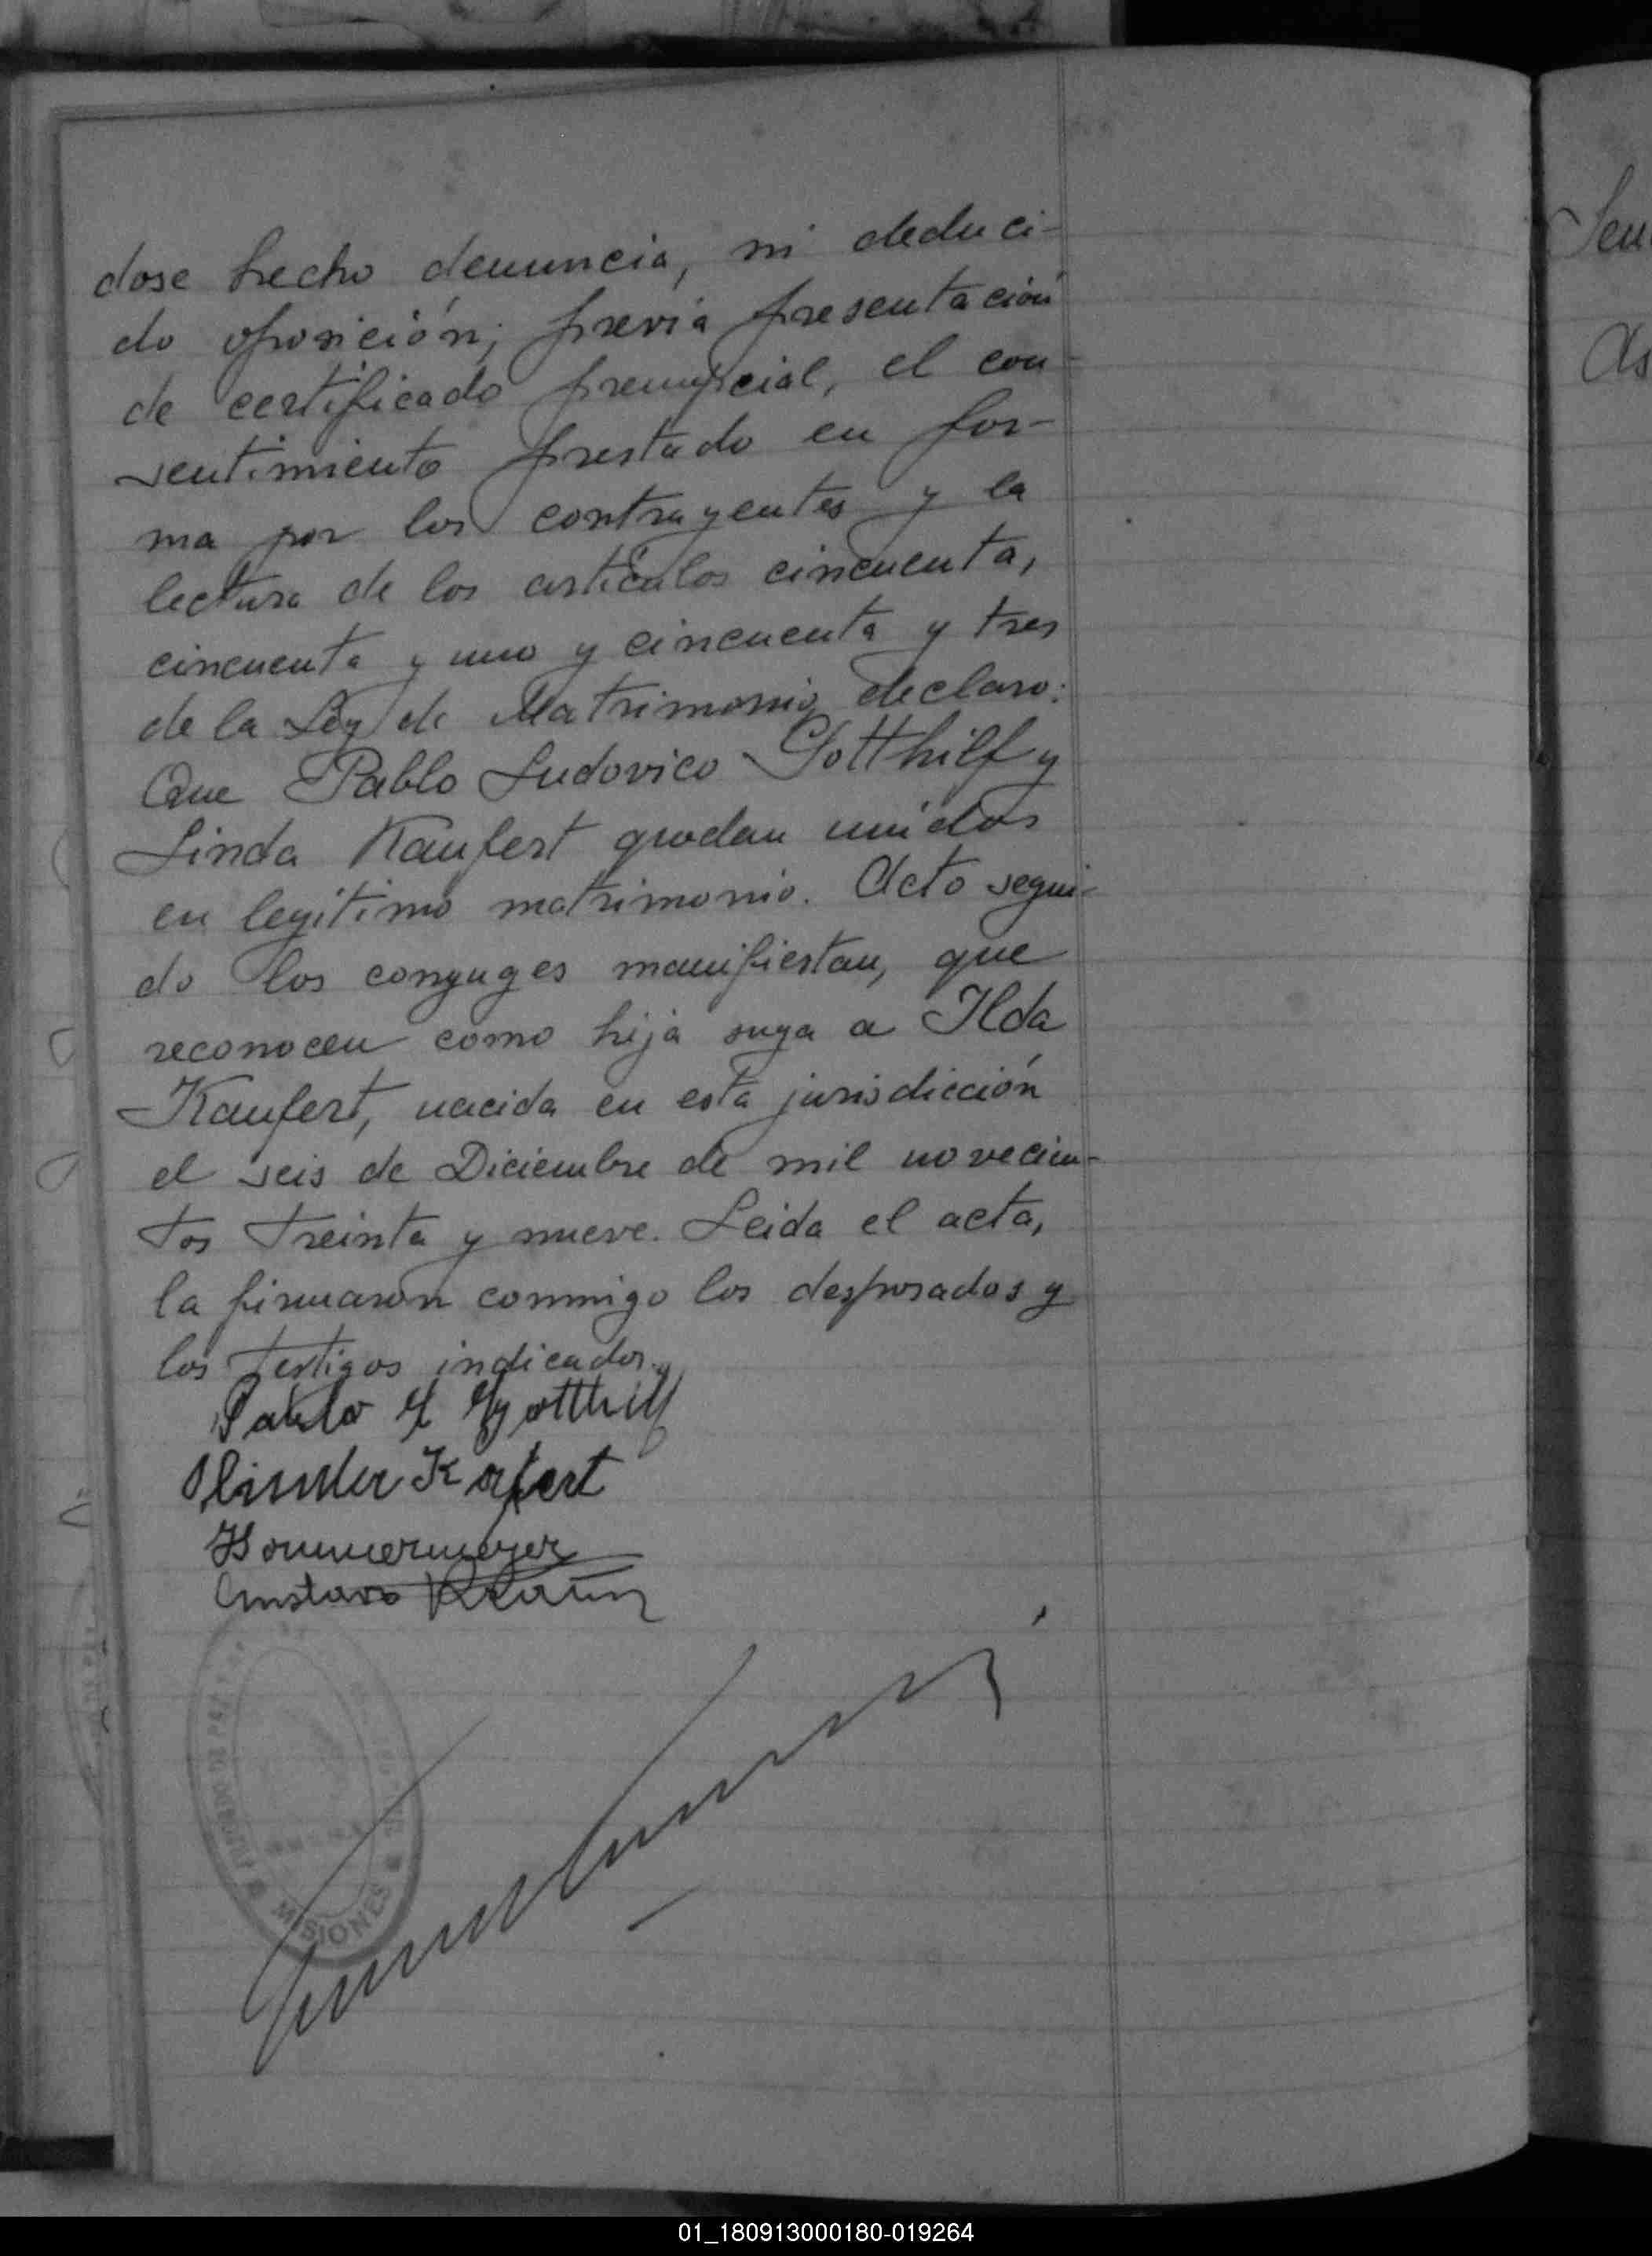 dose hecho denuncia, ni deduci-
do oposición; previa presentación
de certificado prenupcial, el con-
sentimiento prestado en for-
ma por los contrayentes y la
lectura de los artículos cincuenta,
cincuenta y uno y cincuenta y tres
de la Ley de Matrimonio declaro:
Que Pablo Ludovico Gotthilf y
Linda Kaufert quedan unidos
en legítimo matrimonio. Acto segui-
do los conyuges manifiestan, que
reconocen como hija suya a Ilda
Kaufert, nacida en esta jurisdicción
el seis de Diciembre de mil novecien-
tos treinta y nueve. Leida el acta,
la firmaron conmigo los desposados y
los testigos indicados.
Pablo L Gotthilf
Kofert
Gustavo
JUZGADO DE PAZ
MISIONES
01_180913000180-019264